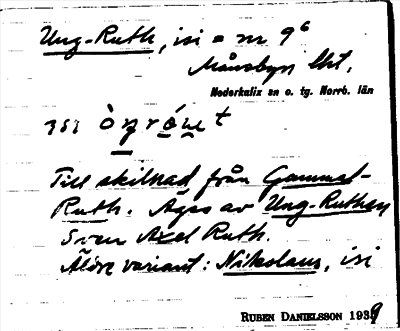 Ung-Ruth, isi = nr 9⁶
Månsbyn lht,
Nederkalix sn o. tg. Norrb. län
Till skilnad från Gammal-
Ruth. Äges av Ung-Ruthen
Sven Axel Ruth.
Äldre variant: Nikolaus, isi
RUBEN DANIELSSON 1939